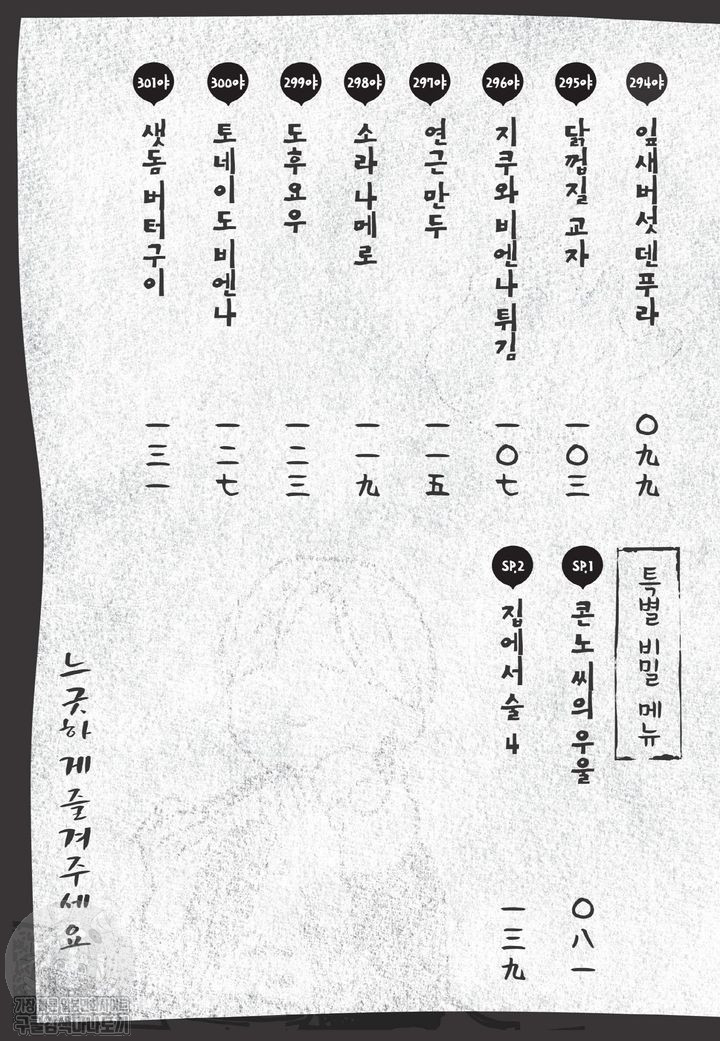 294야
잎새버섯 덴푸라
〇九九
295야
닭껍질 교자
一〇三
296야
지쿠와 비엔나 튀김
一〇七
297야
연근 만두
一一五
298야
소라 나메로
一一九
299야
도후요우
一二三
300야
토네이도 비엔나
一二七
301야
샛돔 버터구이
一三一
특별 비밀 메뉴
SP.1
콘노 씨의 우울
〇八一
SP.2
집에서 술 4
一三九
느긋하게 즐겨주세요